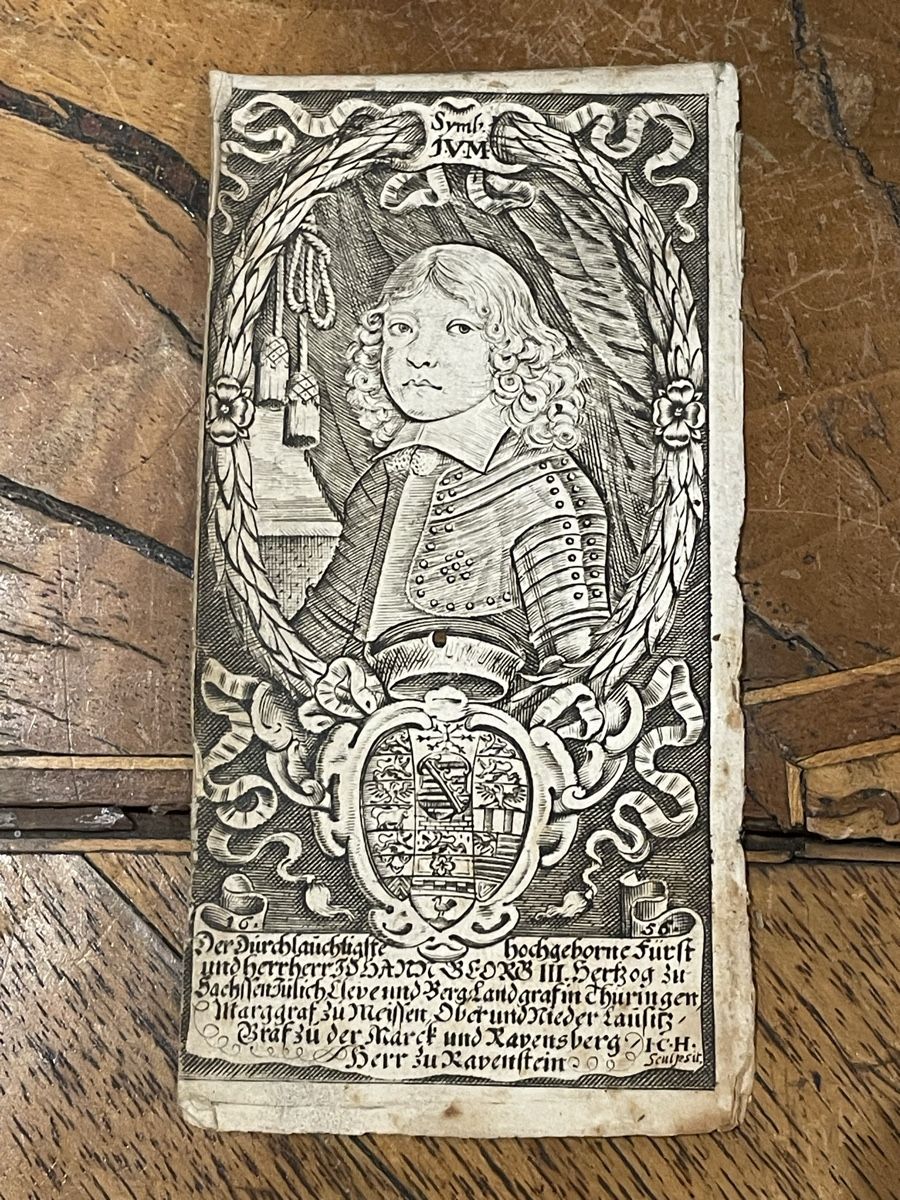 Symb.
IV·M
16.
56.
Der Durchlauchtigste hochgeborne Fürst
und herr herr JOHANN GEORG III. Hertzog zu
Sachssen Julich Cleve und Berg Landgraf in Thuringen
Marggraf zu Meissen, Ober und Nieder Lausitz
Graf zu der Marck und Ravensberg
Herr zu Ravenstein
I·C·H·
Sculpsit.